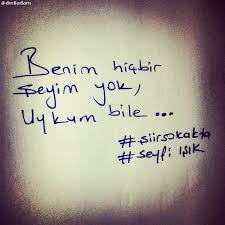 @dediadam
Benim hiçbir
Şeyim yok,
Uykum bile ...
#şiirsokakta
#seyfi ışık